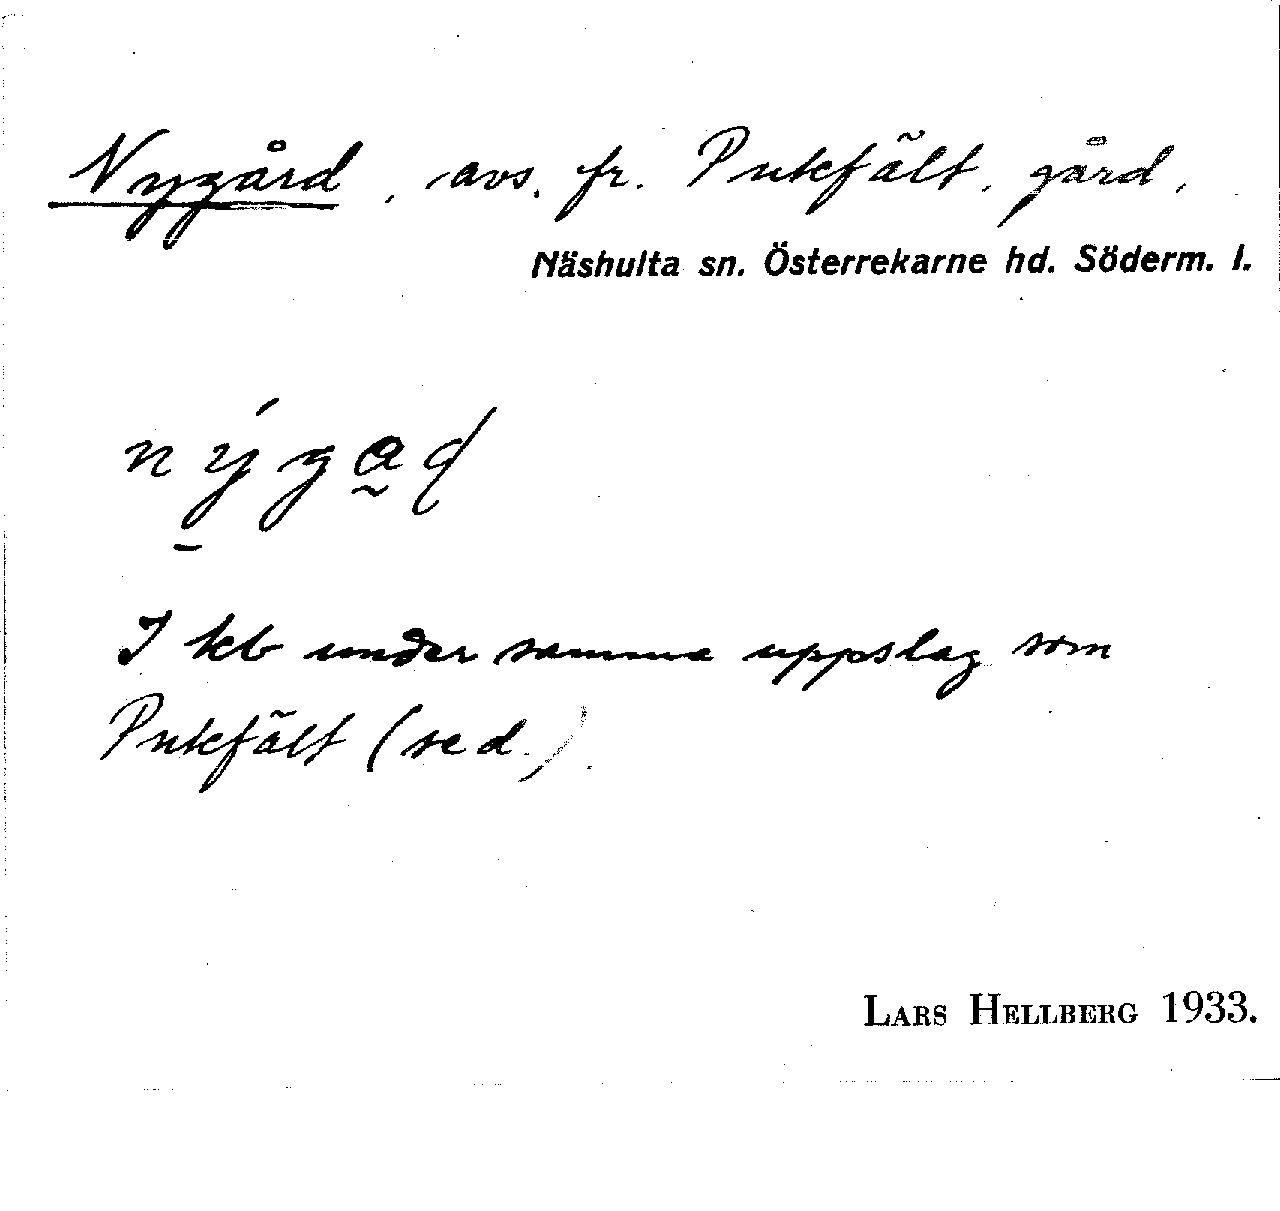 Nygård, avs. fr. Pukfält, gård,
Näshulta sn. Österrekarne hd. Söderm. l.
I kb under samma uppslag som
Pukfält (se d.).
LARS HELLBERG 1933.